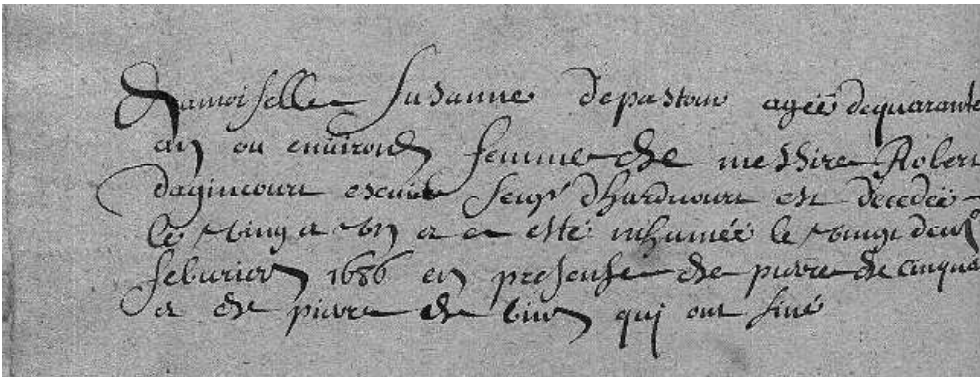 Damoiselle Susanne depastour agéé dequarante
an ou environ femme de messire Robert
dagincourt escuier seigr d'harducourt est décedéé
le vingt et un et a esté inhuméé le vingt deux
feburier 1686 en presense de pierre de cinque
et de pierre de qui ont siné